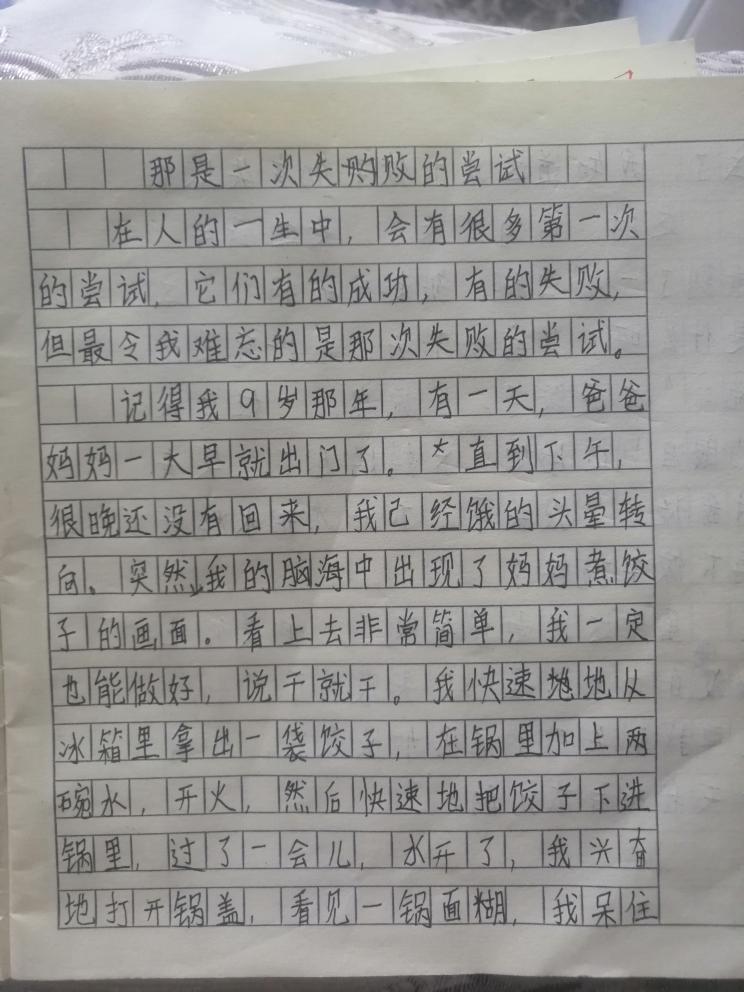 那是一次失败的尝试
在人的一生中，会有很多第一次
的尝试，它们有的成功，有的失败，
但最令我难忘的是那次失败的尝试。
记得我9岁那年，有一天，爸爸
妈妈一大早就出门了。直到下午，
很晚还没有回来，我已经饿的头晕转
向。突然，我的脑海中出现了妈妈煮饺
子的画面。看上去非常简单，我一定
也能做好，说干就干。我快速地从
冰箱里拿出一袋饺子，在锅里加上两
碗水，开火，然后快速地把饺子下进
锅里，过了一会儿，水开了，我兴奋
地打开锅盖，看见一锅面糊，我呆住